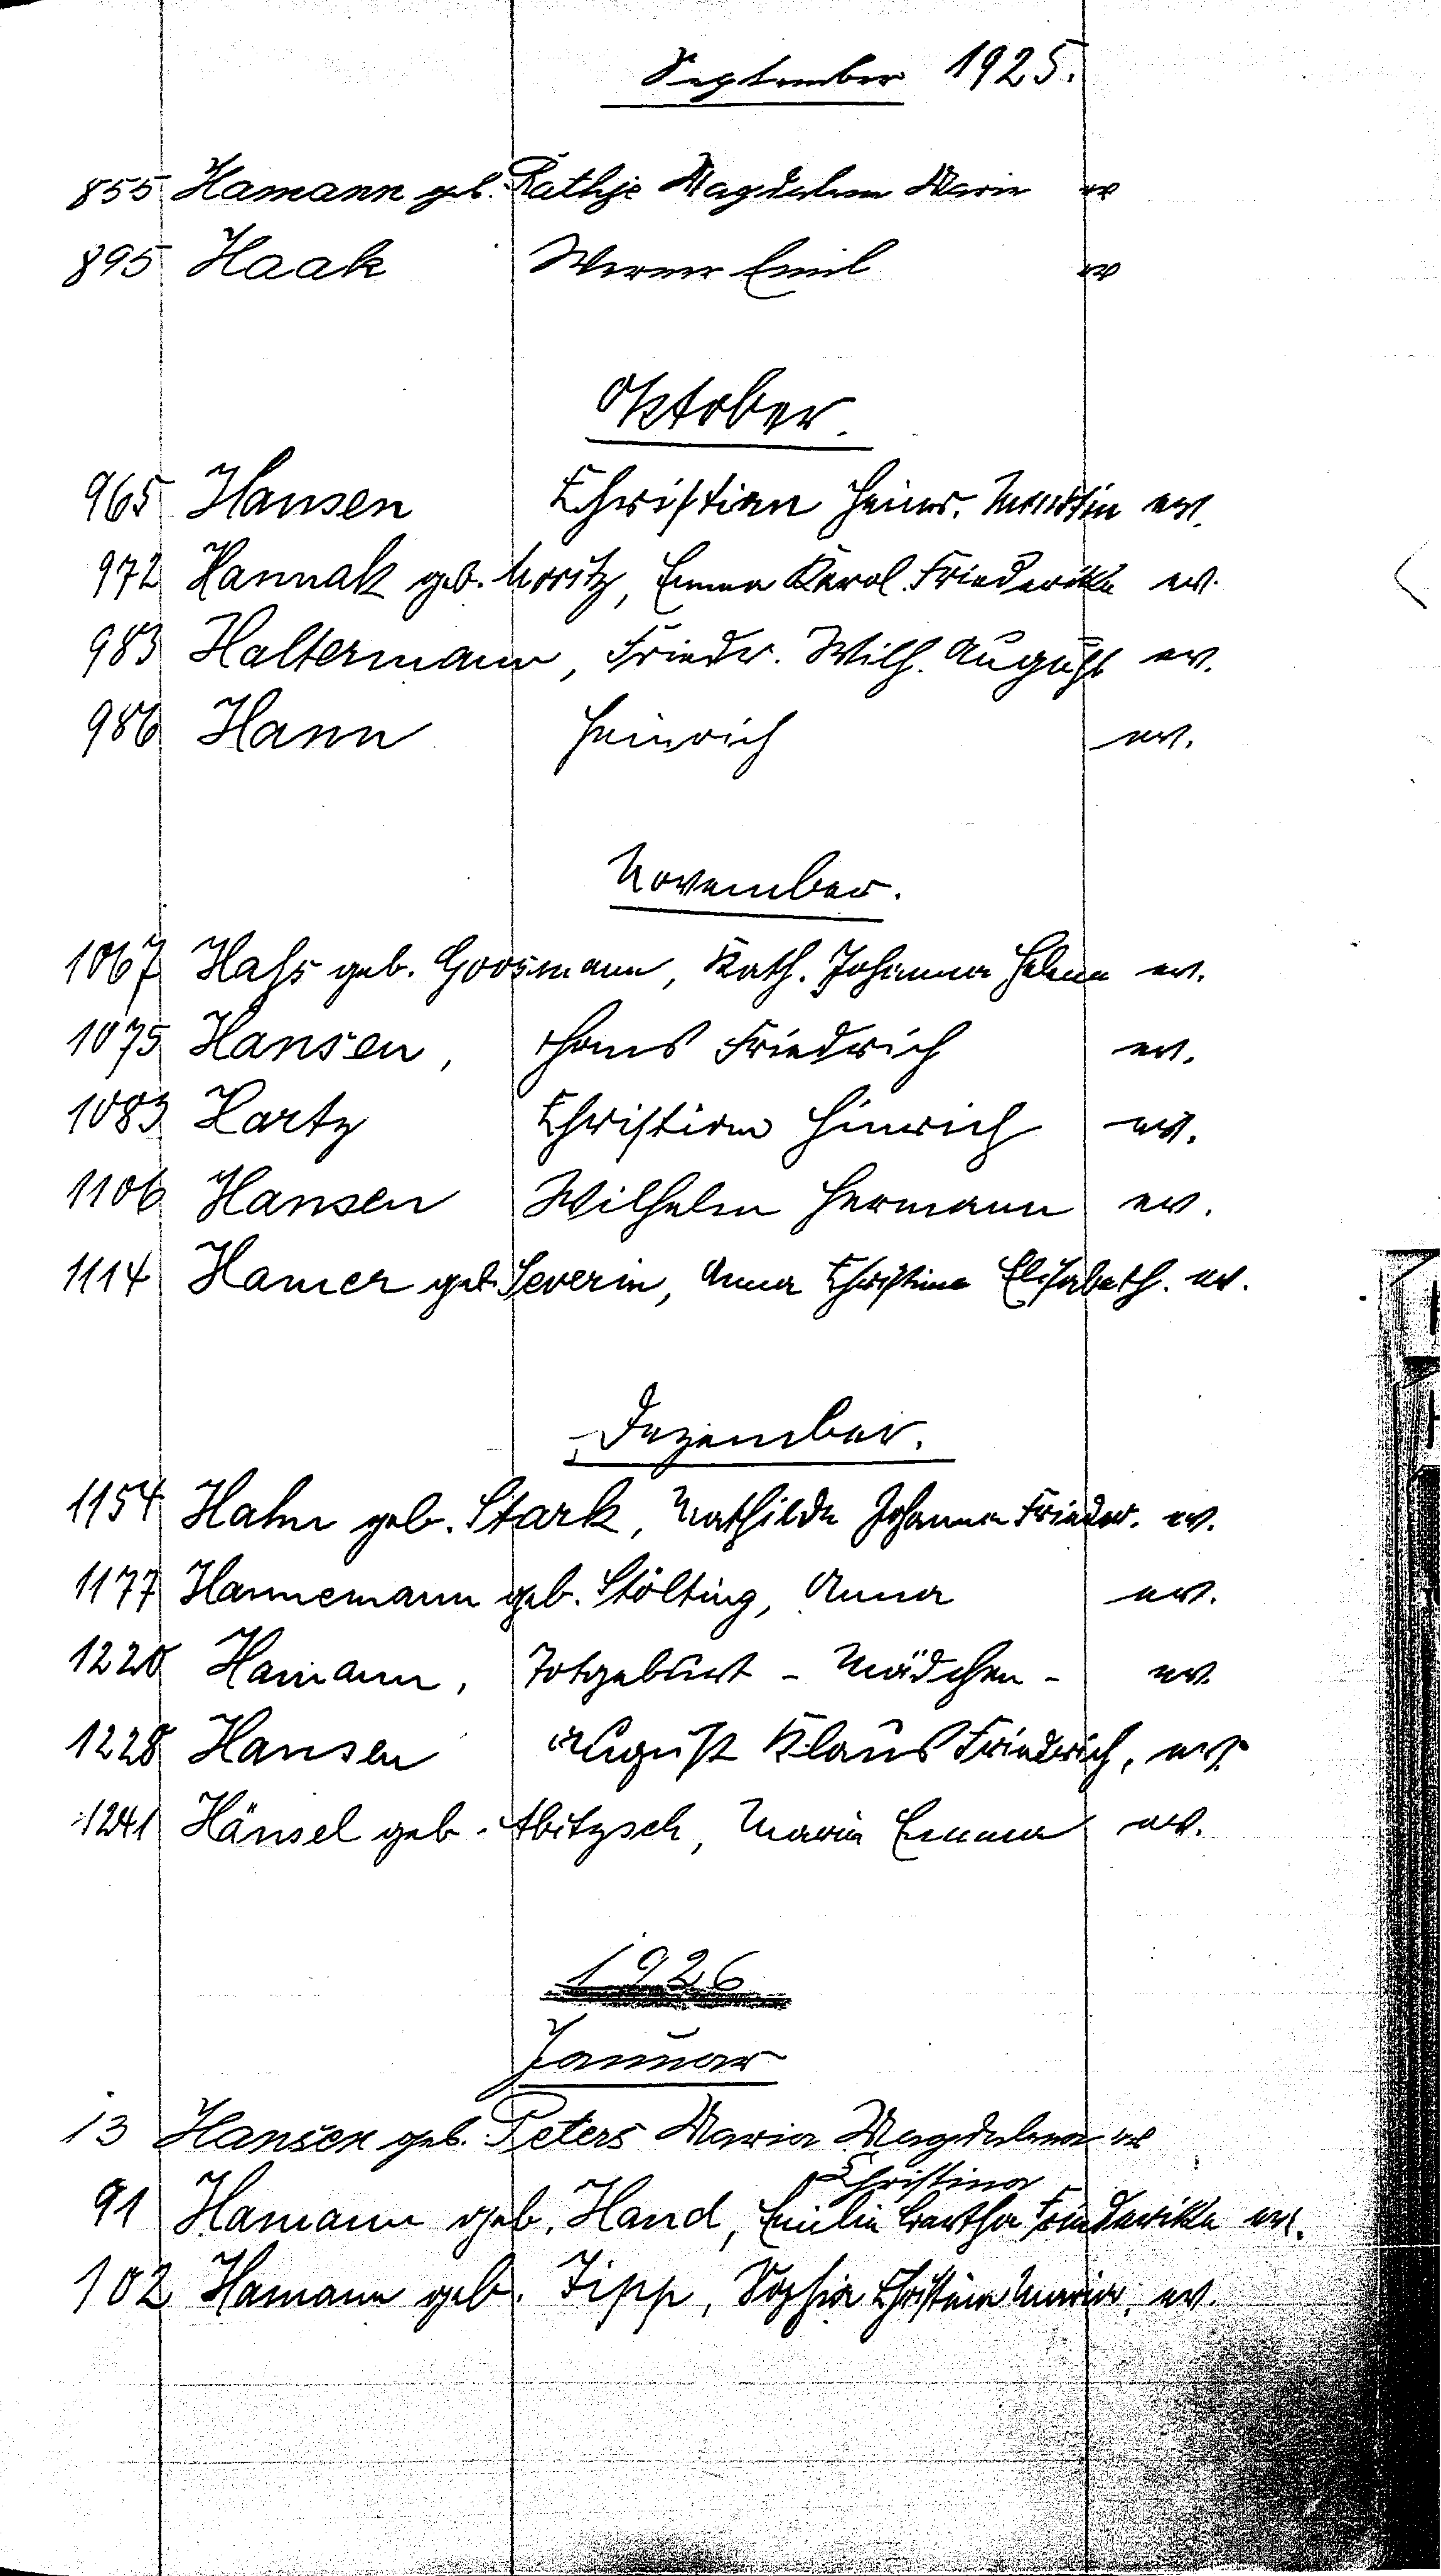 September 1925.
855 Hamann geb. Rathje Magdalena Marie ev
895 Haak Werner Emil ev
Oktober.
965 Hansen Christian Heinr. Martin ev.
972 Hannak geb. Moritz, Emma Karol. Friederikke ev.
983 Haltermann, Friedr. Wilh. August ev.
986 Hann Heinrich ev.
November.
1067 Hahs geb. Goosmann, Kath. Johanna Helene ev.
1075 Hansen, Hans Friedrich ev.
1083 Hartz Christian Hinrich ev.
1106 Hansen Wilhelm Hermann ev.
1114 Hamer geb. Severin, Anna Christine Elisabeth. ev.
Dezember.
1154 Hahn geb. Stark, Mathilde Johanna Frieder. ev.
1177 Hannemann geb. Stölting, Anna ev.
1220 Hamann, Totgeburt - Mädchen - ev.
1228 Hansen August Klaus Friedrich, ev.
1241 Hänsel geb. Abitzsch, Maria Emma ev.
1926
Januar
13 Hansen geb. Peters Maria Magdalena ev
Christina
91 Hamann geb. Hand, Emilie Bertha Friederikke ev.
102 Hamann geb. Tipp, Sophia Christina Maria, ev.